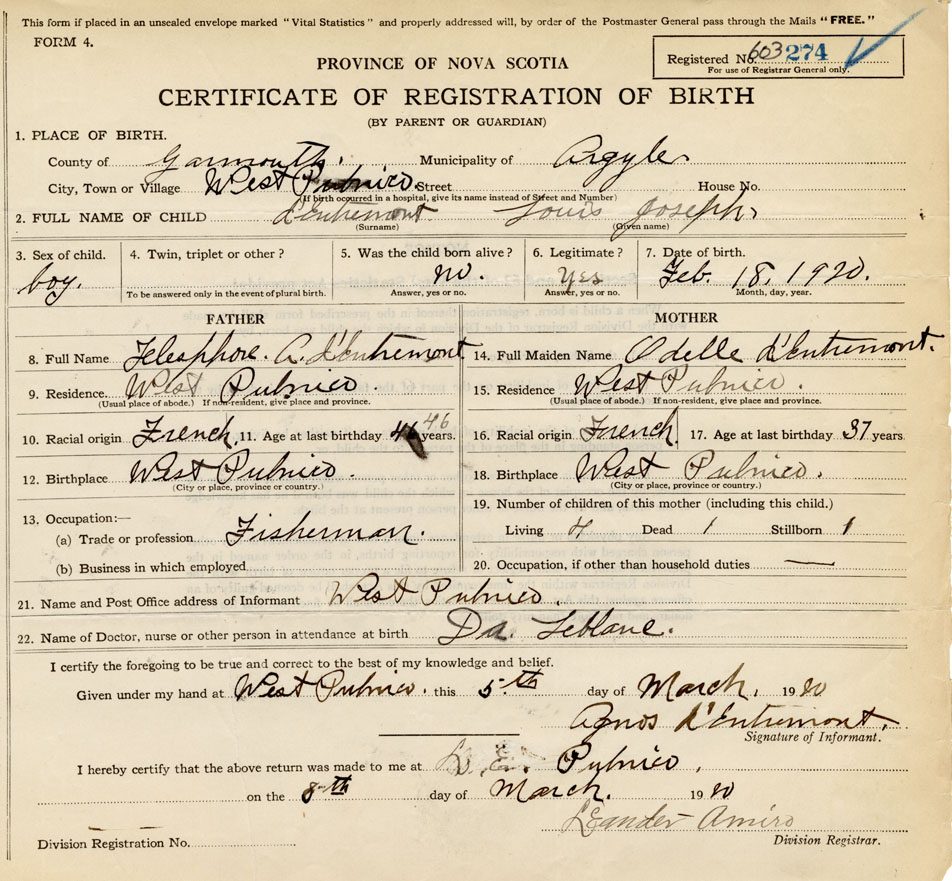 This form if placed in an unsealed envelope marked "Vital Statistics" and properly addressed will, by order of the Postmaster General pass through the Mails "FREE."
FORM 4.
Registered No. 603 274
For use of Registrar General only.
PROVINCE OF NOVA SCOTIA
CERTIFICATE OF REGISTRATION OF BIRTH
(BY PARENT OR GUARDIAN)
1. PLACE OF BIRTH.
County of Yarmouth. Municipality of Argyle
City, Town or Village West Pubnico. Street House No.
(If birth occurred in a hospital, give its name instead of Street and Number)
2. FULL NAME OF CHILD d'Entremont Louis Joseph
(Surname) (Given name)
3. Sex of child. 4. Twin, triplet or other? 5. Was the child born alive? 6. Legitimate? 7. Date of birth.
boy. no. Yes Feb. 18, 1920.
To be answered only in the event of plural birth. Answer, yes or no. Answer, yes or no. Month, day, year.
FATHER MOTHER
8. Full Name Telesphore. A. d'Entremont 14. Full Maiden Name Odelle d'Entremont.
9. Residence. West Pubnico. 15. Residence West Pubnico.
(Usual place of abode.) If non-resident, give place and province. (Usual place of abode.) If non-resident, give place and province.
10. Racial origin French. 11. Age at last birthday 46 years. 16. Racial origin French. 17. Age at last birthday 37 years.
12. Birthplace West Pubnico. 18. Birthplace West Pubnico.
(City or place, province or country.) (City or place, province or country.)
13. Occupation:— 19. Number of children of this mother (including this child.)
(a) Trade or profession Fisherman. Living 4 Dead 1 Stillborn 1
(b) Business in which employed 20. Occupation, if other than household duties —
21. Name and Post Office address of Informant West Pubnico.
22. Name of Doctor, nurse or other person in attendance at birth Dr. Leblanc.
I certify the foregoing to be true and correct to the best of my knowledge and belief.
Given under my hand at West Pubnico. this 5th day of March, 1920
Agnos d'Entremont.
Signature of Informant.
I hereby certify that the above return was made to me at Pubnico,
on the 8th day of March. 1920
Leander Amiro
Division Registration No. Division Registrar.